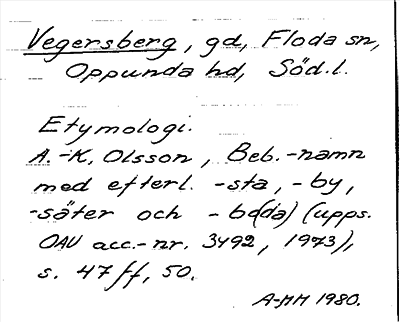 Vegersberg, gd, Floda sn,
Oppunda hd, Söd.l.
Etymologi.
A.-K. Olsson, Beb.-namn
med efterl. -sta, -by,
-säter och -bo(da) (upps.
OAU acc.-nr. 3492, 1973),
s. 47 ff, 50.
A-MH 1980.